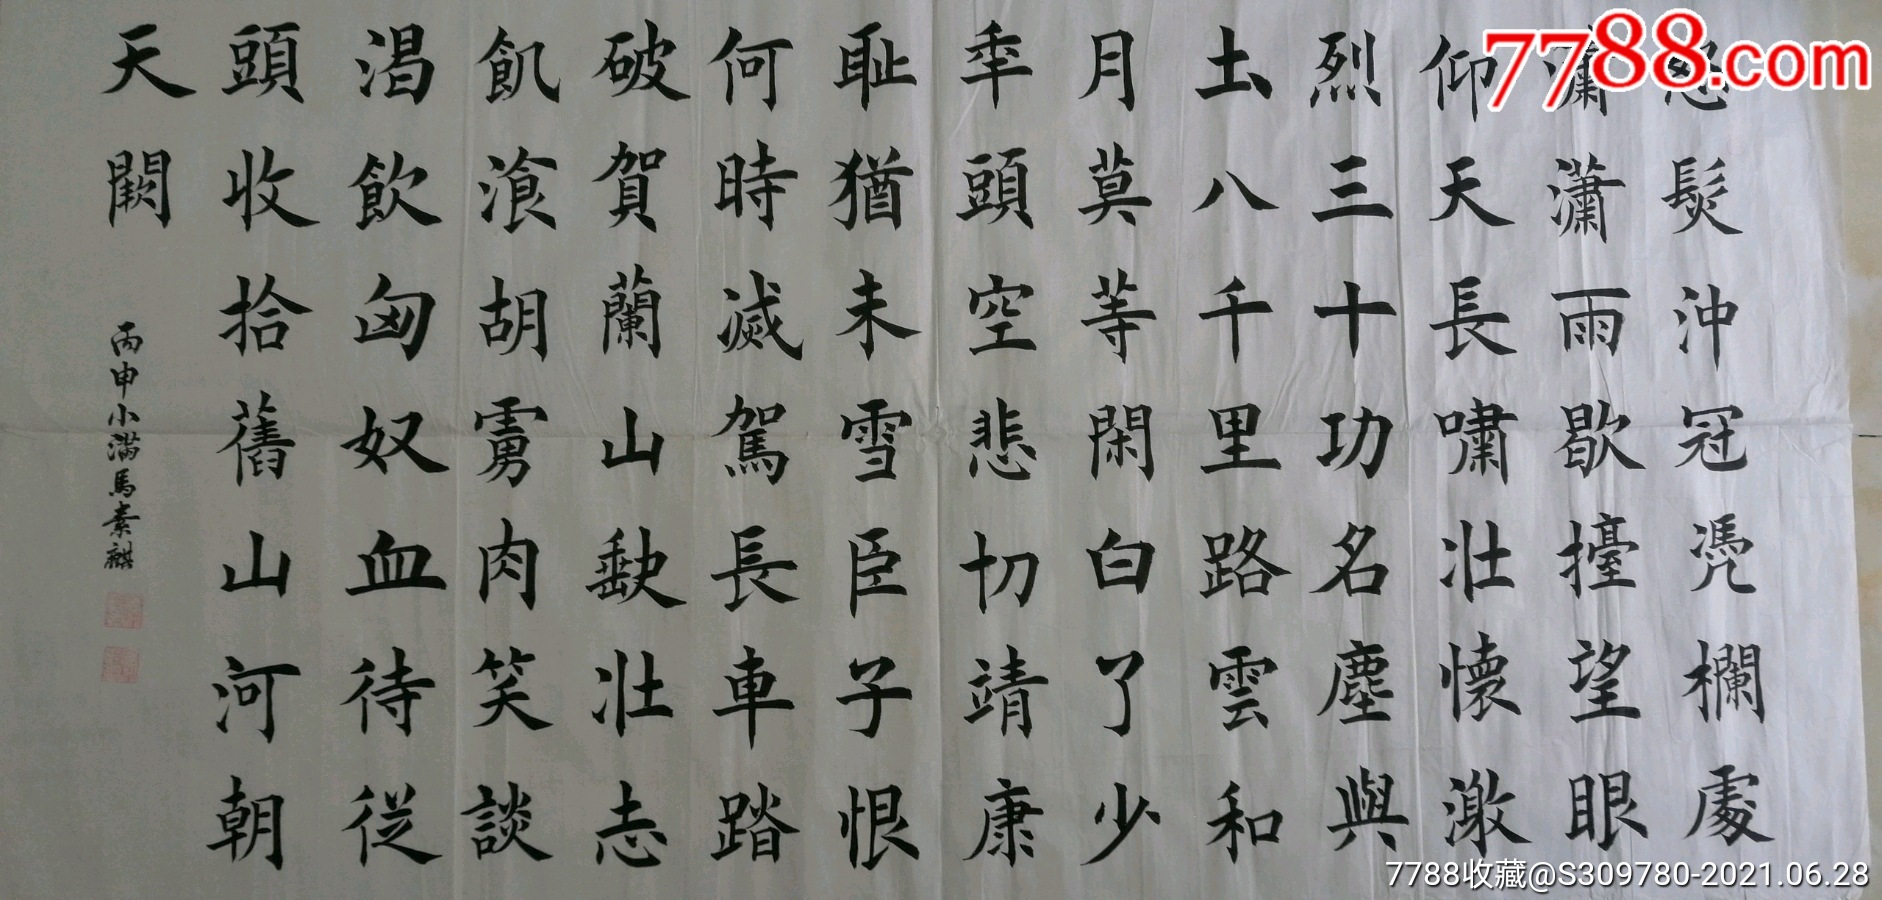 怒髮沖冠凴欄處
瀟瀟雨歇擡望眼
仰天長嘯壯懷激
烈三十功名塵與
土八千里路雲和
月莫等閑白了少
年頭空悲切靖康
耻猶未雪臣子恨
何時滅駕長車踏
破賀蘭山缺壯志
飢湌胡虜肉笑談
渴飲匈奴血待從
頭收拾舊山河朝
天闕
丙申小滿馬素祺
7788.com
7788收藏@S309780-2021.06.28